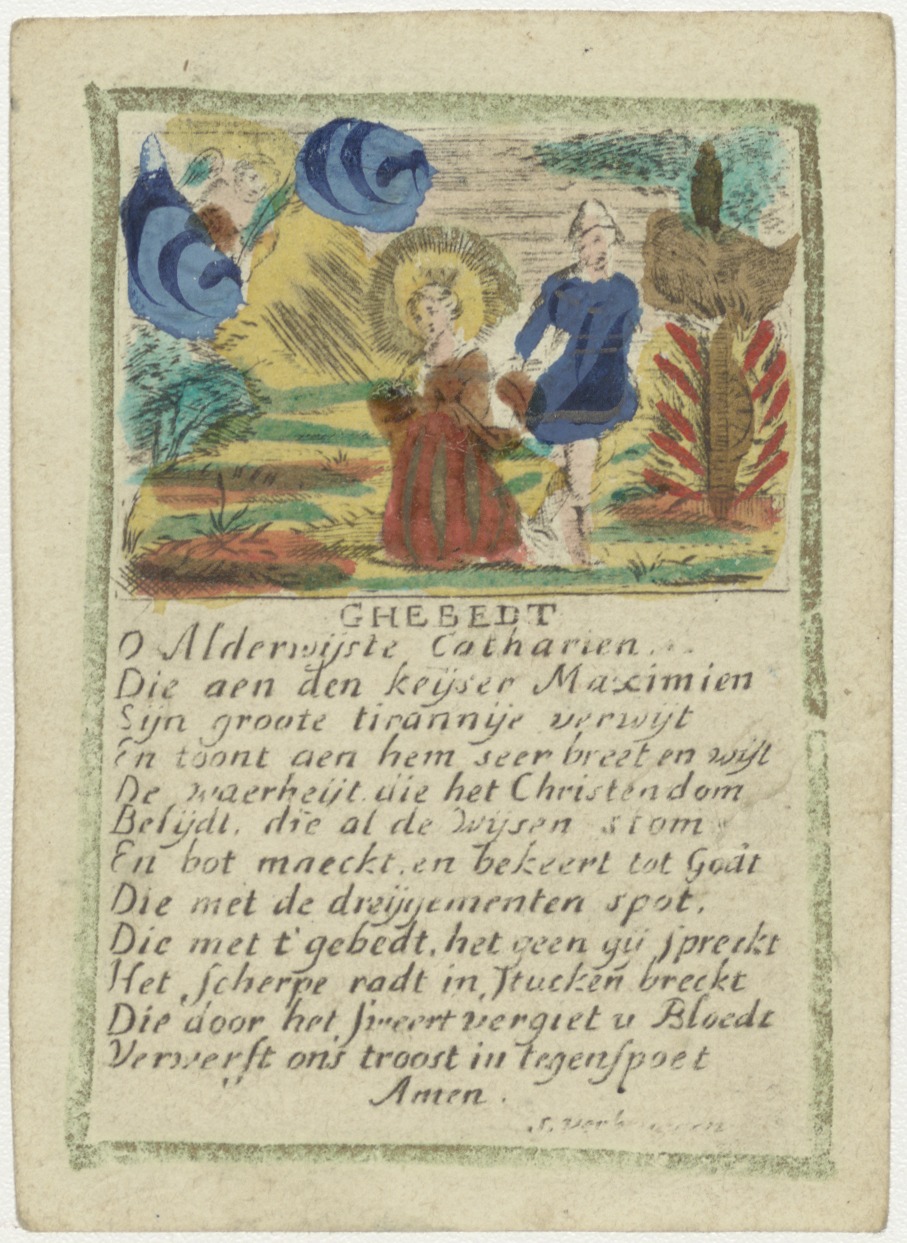 GHEBEDT
O Alderwijste Catharien
Die aen den keijser Maximien
Sijn groote tirannije verwijt
En toont aen hem seer breet en wijt
De waerheijt die het Christendom
Belijdt, die al de wijsen stom
En bot maeckt, en bekeert tot Godt
Die met de dreijgementen spot,
Die met t'gebedt, het geen gij spreckt
Het scherpe radt in stucken breckt
Die door het sweert vergiet u Bloedt
Verwerft ons troost in tegenspoet
Amen.